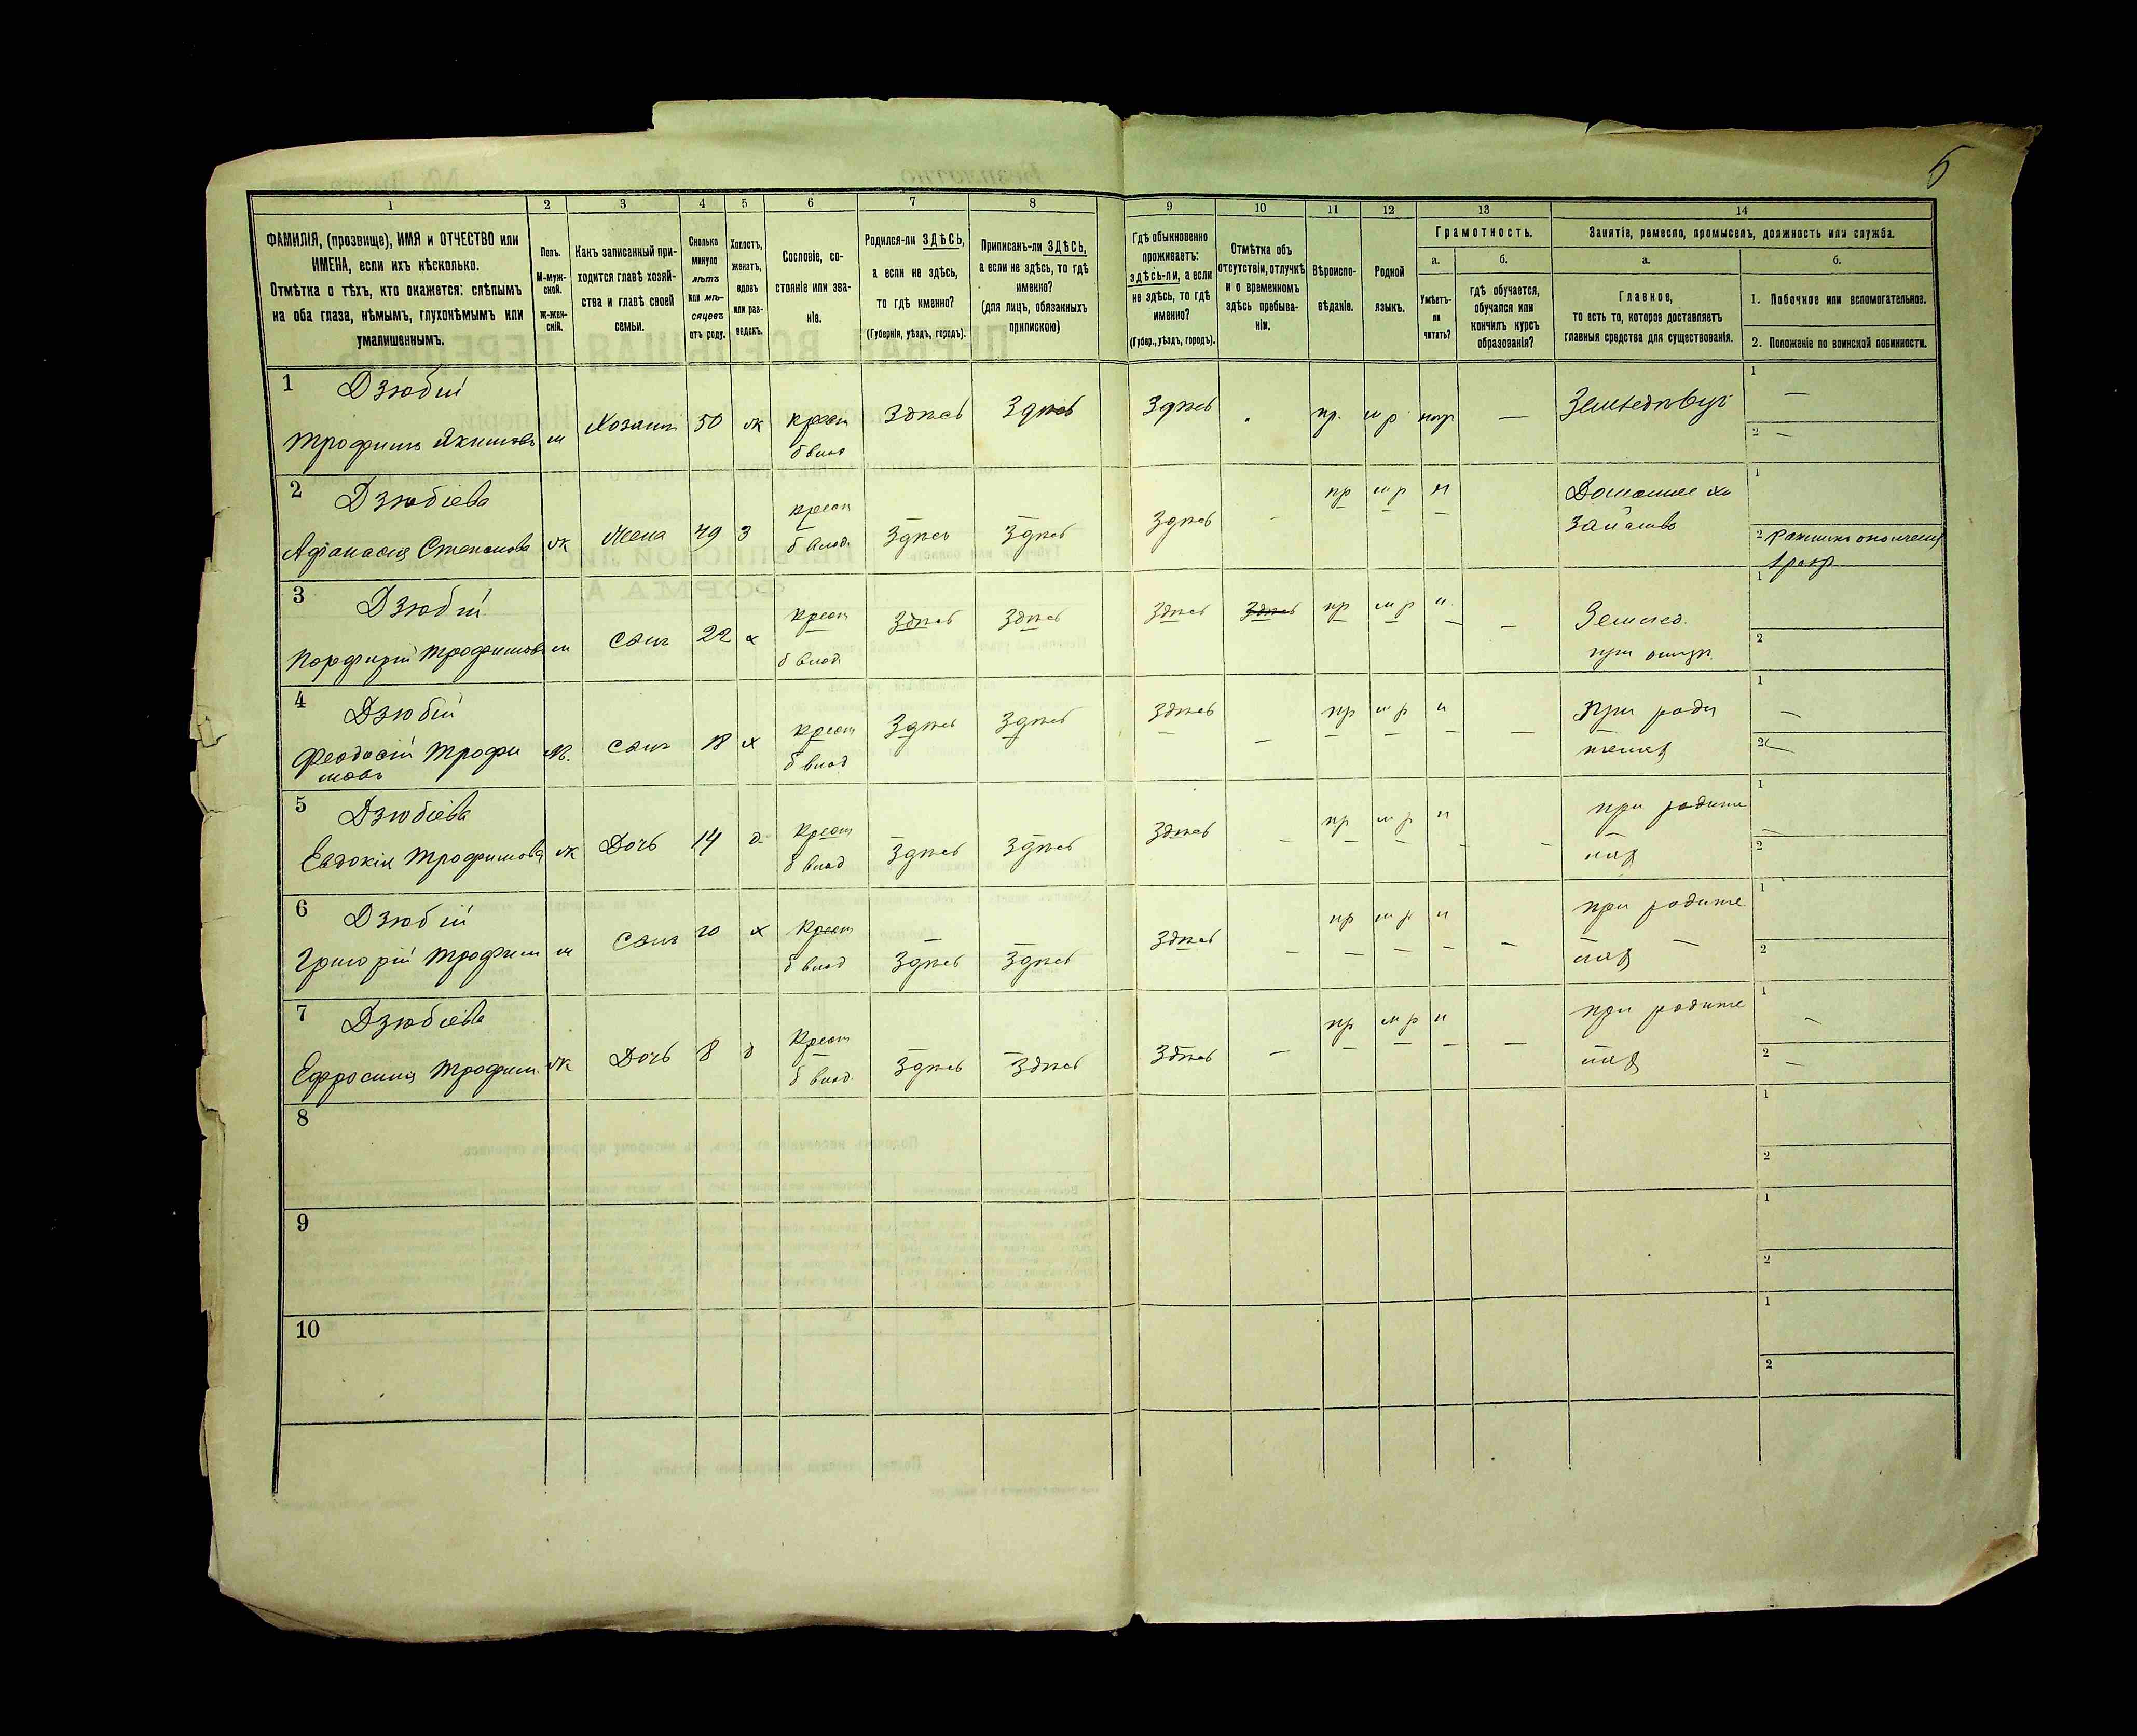 5
1 2 3 4 5 6 7 8 9 10 11 12 13 14
ФАМИЛІЯ, (прозвище), ИМЯ и ОТЧЕСТВО или
ИМЕНА, если ихъ нѣсколько.
Отмѣтка о тѣхъ, кто окажется: слѣпымъ
на оба глаза, нѣмымъ, глухонѣмымъ или
умалишеннымъ.
Полъ.
М-муж-
ской.
Ж-жен-
скій.
Какъ записанный при-
ходится главѣ хозяй-
ства и главѣ своей
семьи.
Сколько
минуло
лѣтъ
или мѣ-
сяцевъ
отъ роду.
Холостъ,
женатъ,
вдовъ
или раз-
веденъ.
Сословіе, со-
стояніе или зва-
ніе.
Родился-ли ЗДѢСЬ,
а если не здѣсь,
то гдѣ именно?
(Губернія, уѣздъ, городъ).
Приписанъ-ли ЗДѢСЬ,
а если не здѣсь, то гдѣ
именно?
(для лицъ, обязанныхъ
припискою)
Гдѣ обыкновенно
проживаетъ:
здѣсь-ли, а если
не здѣсь, то гдѣ
именно?
(Губер., уѣздъ, городъ).
Отмѣтка объ
отсутствіи, отлучкѣ
и о временномъ
здѣсь пребыва-
ніи.
Вѣроиспо-
вѣданіе.
Родной
языкъ.
Грамотность.
а.
Умѣетъ-
ли
читать?
б.
гдѣ обучается,
обучался или
кончилъ курсъ
образованія?
Занятіе, ремесло, промыселъ, должность или служба.
а.
Главное,
то есть то, которое доставляетъ
главныя средства для существованія.
б.
1. Побочное или вспомогательное.
2. Положеніе по воинской повинности.
1 Дзюбій
Трофимъ Якимовъ м Хозаинъ 50 ж крест Здѣсь Здѣсь Здѣсь пр. м р Земледѣлецъ
б влад
2 Дзюбіева
Афанасія Степанова ж Жена 49 З крест Здѣсь Здѣсь Здѣсь - пр м р н Домашнее хо
б влад. зайство
3 Дзюбій
Порфирій Трофимовъ м Сынъ 22 х крест Здѣсь Здѣсь Здѣсь Здѣсь пр м р н - Землед.
б влад. при отцѣ
4 Дзюбій
Феодосій Трофи м. Сынъ 18 х крест Здѣсь Здѣсь Здѣсь - пр м р н - При роди
мовъ б влад теляхъ
5 Дзюбіева
Евдокія Трофимова ж Дочь 14 д крест Здѣсь Здѣсь Здѣсь - пр м р н - при родите
б влад ляхъ
6 Дзюбій
Григорій Трофим м Сынъ 10 х крест Здѣсь Здѣсь Здѣсь - пр м р н - при родите
б влад ляхъ
7 Дзюбіева
Ефросинія Трофим. ж Дочь 8 д крест Здѣсь Здѣсь Здѣсь - пр м р н - при родите
б влад. ляхъ
8
9
10